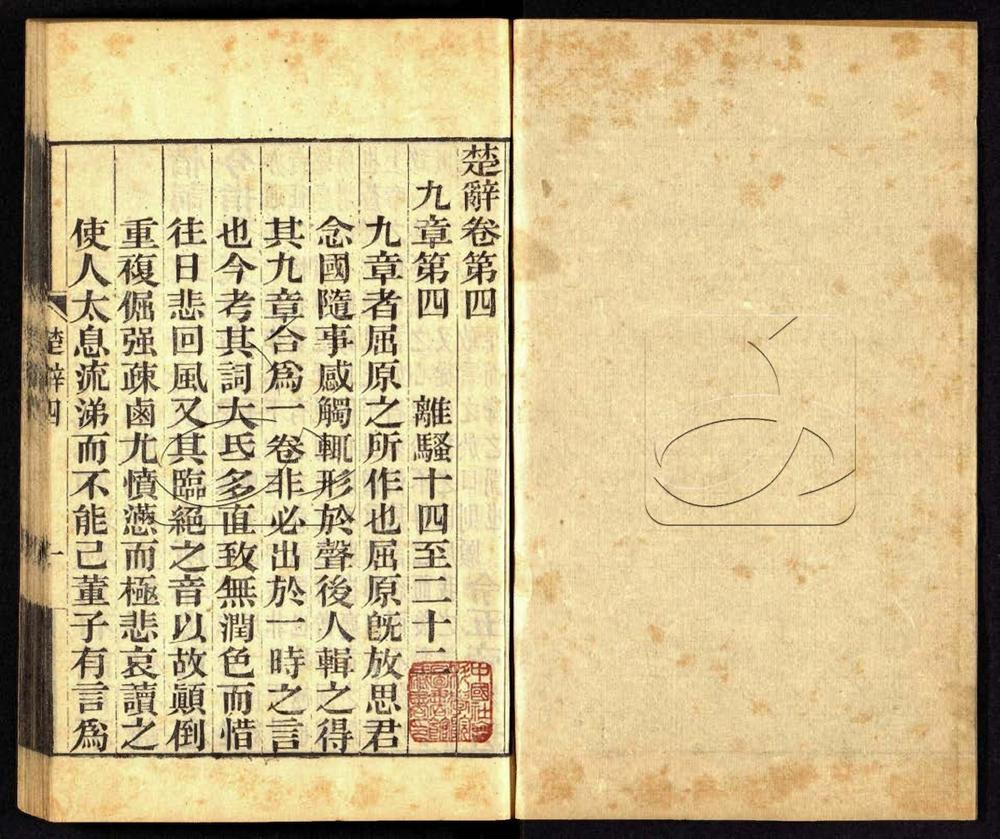 楚辭卷第四
九章第四　離騷十四至二十二
九章者屈原之所作也屈原旣放思君
念國隨事感觸輒形於聲後人輯之得
其九章合爲一卷非必出於一時之言
也今考其詞大氐多直致無潤色而惜
往日悲回風又其臨絕之音以故顚倒
重複倔强疎鹵尤憤懣而極悲哀讀之
使人太息流涕而不能已董子有言爲
楚辭四
一